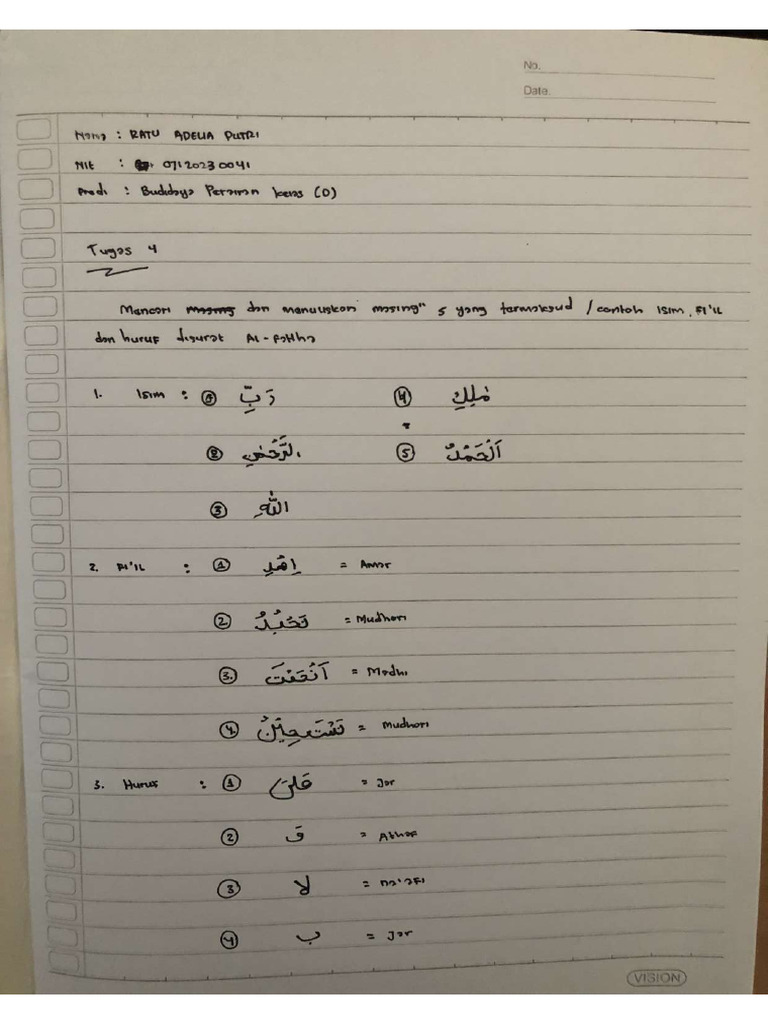 No.
Date.
Nama : RATU ADELIA PUTRI
NIT : 07120230041
Prodi : Budidaya Perairan kelas (D)
Tugas 4
Mencari dan menuliskan masing" 5 yang termaksud / contoh ISIM, FI'IL
dan huruf disurat Al-Fatiha
1. Isim : ① رَبِّ ④ مٰلِكِ
② الرَّحْمٰنِ ⑤ اَلْحَمْدُ
③ اللّٰهِ
2. FI'IL : ① اِهْدِ = Amar
② نَعْبُدُ = Mudhori
③ اَنْعَمْتَ = Madhi
④ نَسْتَعِيْنُ = Mudhori
3. Huruf : ① عَلَى = Jar
② وَ = Athaf
③ لا =
④ ب = Jar
VISION